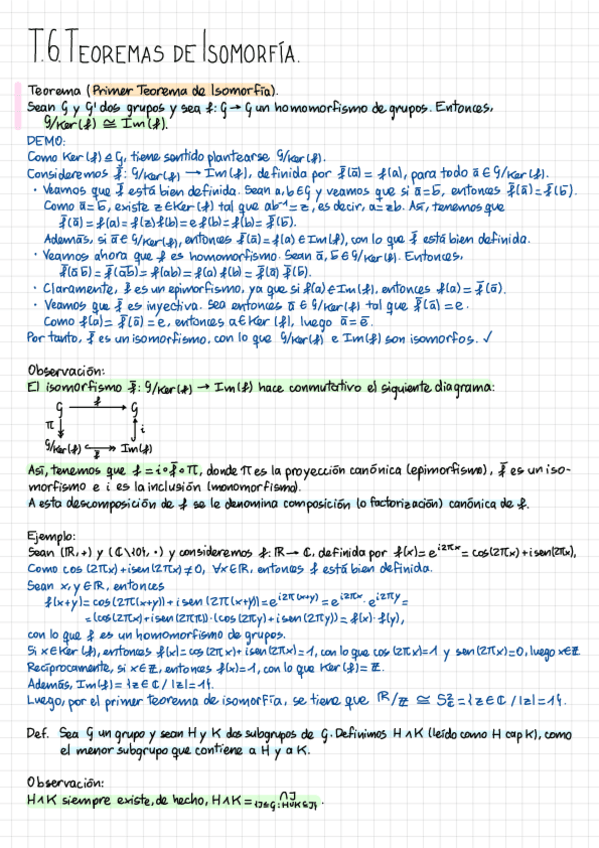 T.6. TEOREMAS DE ISOMORFÍA.
Teorema (Primer Teorema de Isomorfía).
Sean G y G' dos grupos y sea f: G → G un homomorfismo de grupos. Entonces,
G/Ker(f) ≅ Im(f).
DEMO:
Como Ker(f) ⊴ G, tiene sentido plantearse G/Ker(f).
Consideremos f̄: G/Ker(f) → Im(f), definida por f̄(ā) = f(a), para todo ā ∈ G/Ker(f).
· Veamos que f̄ está bien definida. Sean a, b ∈ G y veamos que si ā = b̄, entonces f̄(ā) = f̄(b̄).
Como ā = b̄, existe z ∈ Ker(f) tal que ab⁻¹ = z, es decir, a = zb. Así, tenemos que
f̄(ā) = f(a) = f(z)f(b) = e f(b) = f(b) = f̄(b̄).
Además, si ā ∈ G/Ker(f), entonces f̄(ā) = f(a) ∈ Im(f), con lo que f̄ está bien definida.
· Veamos ahora que f es homomorfismo. Sean ā, b̄ ∈ G/Ker(f). Entonces,
f̄(ā b̄) = f̄(ab̄) = f(ab) = f(a) f(b) = f̄(ā) f̄(b̄).
· Claramente, f̄ es un epimorfismo, ya que si f(a) ∈ Im(f), entonces f(a) = f̄(ā).
· Veamos que f̄ es inyectiva. Sea entonces ā ∈ G/Ker(f) tal que f̄(ā) = e.
Como f(a) = f̄(ā) = e, entonces a ∈ Ker(f), luego ā = ē.
Por tanto, f̄ es un isomorfismo, con lo que G/Ker(f) e Im(f) son isomorfos. ✓
Observación:
El isomorfismo f̄: G/Ker(f) → Im(f) hace conmutativo el siguiente diagrama:
G f G
π i
G/Ker(f) f̄ Im(f)
Así, tenemos que f = i∘f̄∘π, donde π es la proyección canónica (epimorfismo), f̄ es un iso-
morfismo e i es la inclusión (monomorfismo).
A esta descomposición de f se le denomina composición (o factorización) canónica de f.
Ejemplo:
Sean (ℝ,+) y (ℂ\{0}, ·) y consideremos f: ℝ → ℂ, definida por f(x) = e^{i2πx} = cos(2πx) + i sen(2πx),
Como cos(2πx) + i sen(2πx) ≠ 0, ∀x ∈ ℝ, entonces f está bien definida.
Sean x, y ∈ ℝ, entonces
f(x+y) = cos(2π(x+y)) + i sen(2π(x+y)) = e^{i2π(x+y)} = e^{i2πx} · e^{i2πy} =
= (cos(2πx) + i sen(2πx)) · (cos(2πy) + i sen(2πy)) = f(x) · f(y),
con lo que f es un homomorfismo de grupos.
Si x ∈ Ker(f), entonces f(x) = cos(2πx) + i sen(2πx) = 1, con lo que cos(2πx) = 1 y sen(2πx) = 0, luego x ∈ ℤ.
Recíprocamente, si x ∈ ℤ, entonces f(x) = 1, con lo que Ker(f) = ℤ.
Además, Im(f) = {z ∈ ℂ / |z| = 1}.
Luego, por el primer teorema de isomorfía, se tiene que ℝ/ℤ ≅ = {z ∈ ℂ / |z| = 1}.
Def. Sea G un grupo y sean H y K dos subgrupos de G. Definimos H ∧ K (leído como H cap K), como
el menor subgrupo que contiene a H y a K.
Observación:
H ∧ K siempre existe, de hecho, H ∧ K = ∩J {J≤G : H∪K⊆J}.